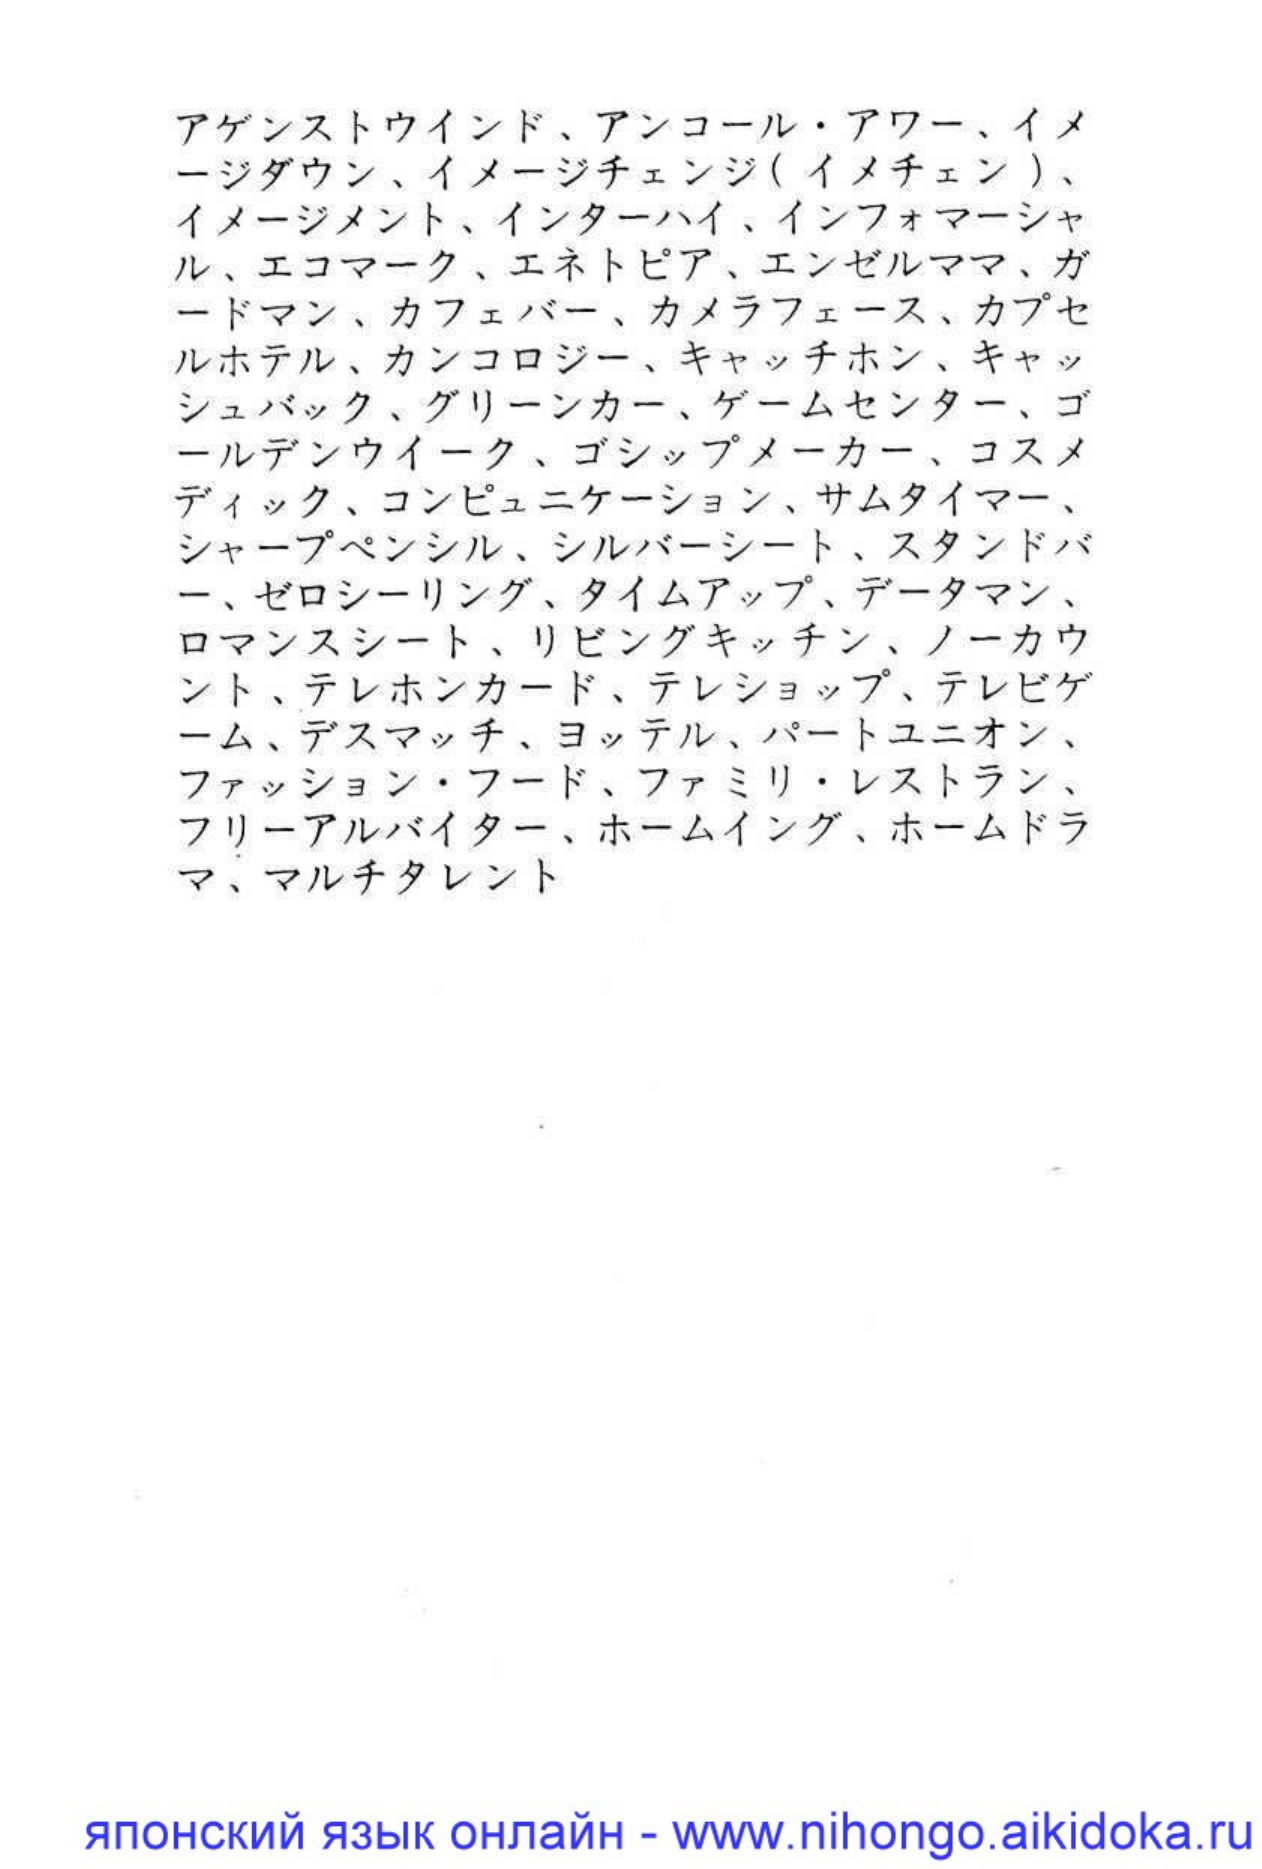 アゲンストウインド、アンコール・アワー、イメ
ージダウン、イメージチェンジ(イメチェン)、
イメージメント、インターハイ、インフォマーシャ
ル、エコマーク、エネトピア、エンゼルママ、ガ
ードマン、カフェバー、カメラフェース、カプセ
ルホテル、カンコロジー、キャッチホン、キャッ
シュバック、グリーンカー、ゲームセンター、ゴ
ールデンウイーク、ゴシップメーカー、コスメ
ディック、コンピュニケーション、サムタイマー、
シャープペンシル、シルバーシート、スタンドバ
ー、ゼロシーリング、タイムアップ、データマン、
ロマンスシート、リビングキッチン、ノーカウ
ント、テレホンカード、テレショップ、テレビゲ
ーム、デスマッチ、ヨッテル、パートユニオン、
ファッション・フード、ファミリ・レストラン、
フリーアルバイター、ホームイング、ホームドラ
マ、マルチタレント
японский язык онлайн - www.nihongo.aikidoka.ru